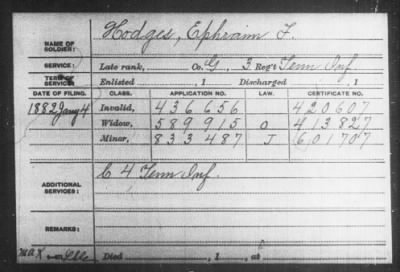 NAME OF SOLDIER: Hodges, Ephraim F.
SERVICE: Late rank, Co. G, 3 Reg't Tenn Inf
TERM OF SERVICE: Enlisted , 1 Discharged , 1
DATE OF FILING. CLASS. APPLICATION NO. LAW. CERTIFICATE NO.
1882 Jany 4 Invalid, 436656 420607
Widow, 589915 O 413827
Minor, 833487 J 601707
ADDITIONAL SERVICES: C 4 Tenn Inf.
REMARKS:
Died , 1 , at